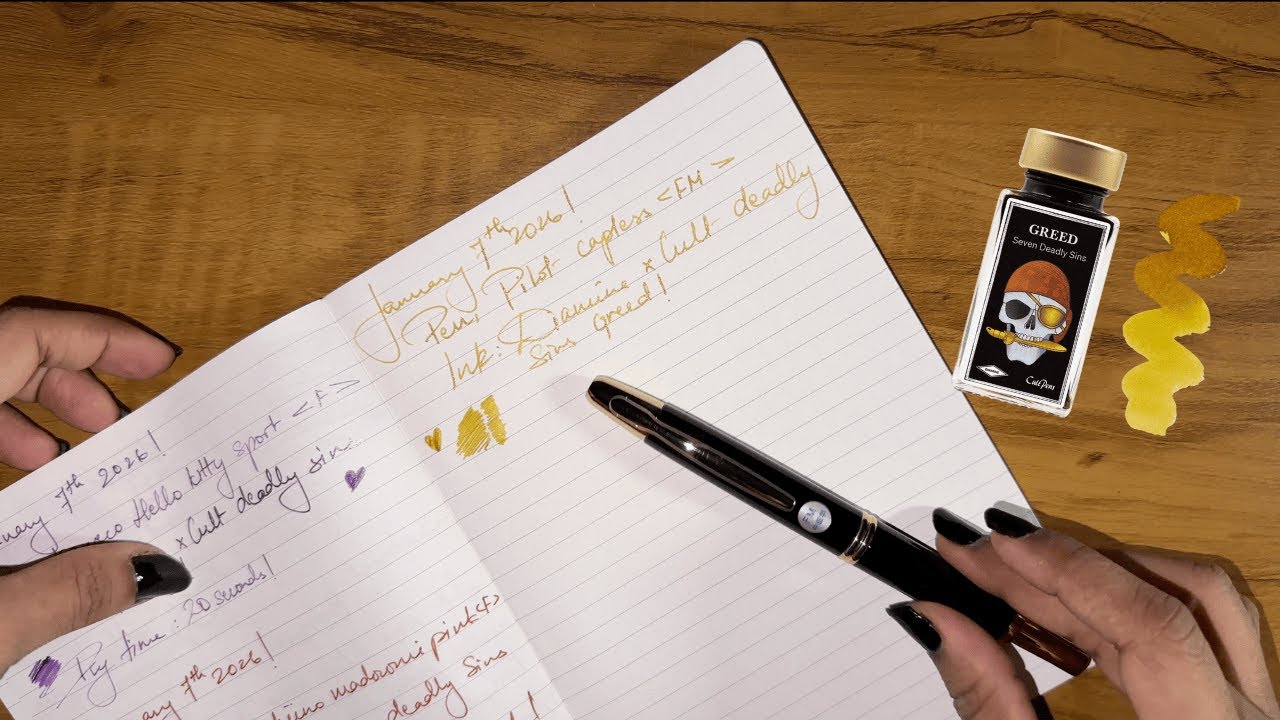 January 7th 2026!
Pen: Pilot capless <FM>
Ink: Diamine x Cult deadly
sins Greed!
nuary 7th 2026!
eco Hello kitty sport <F>
x Cult deadly sins
Dry time: 20 seconds!
ary 7th 2026!
pink <F>
deadly Sins
GREED
Seven Deadly Sins
Cult Pens
FM